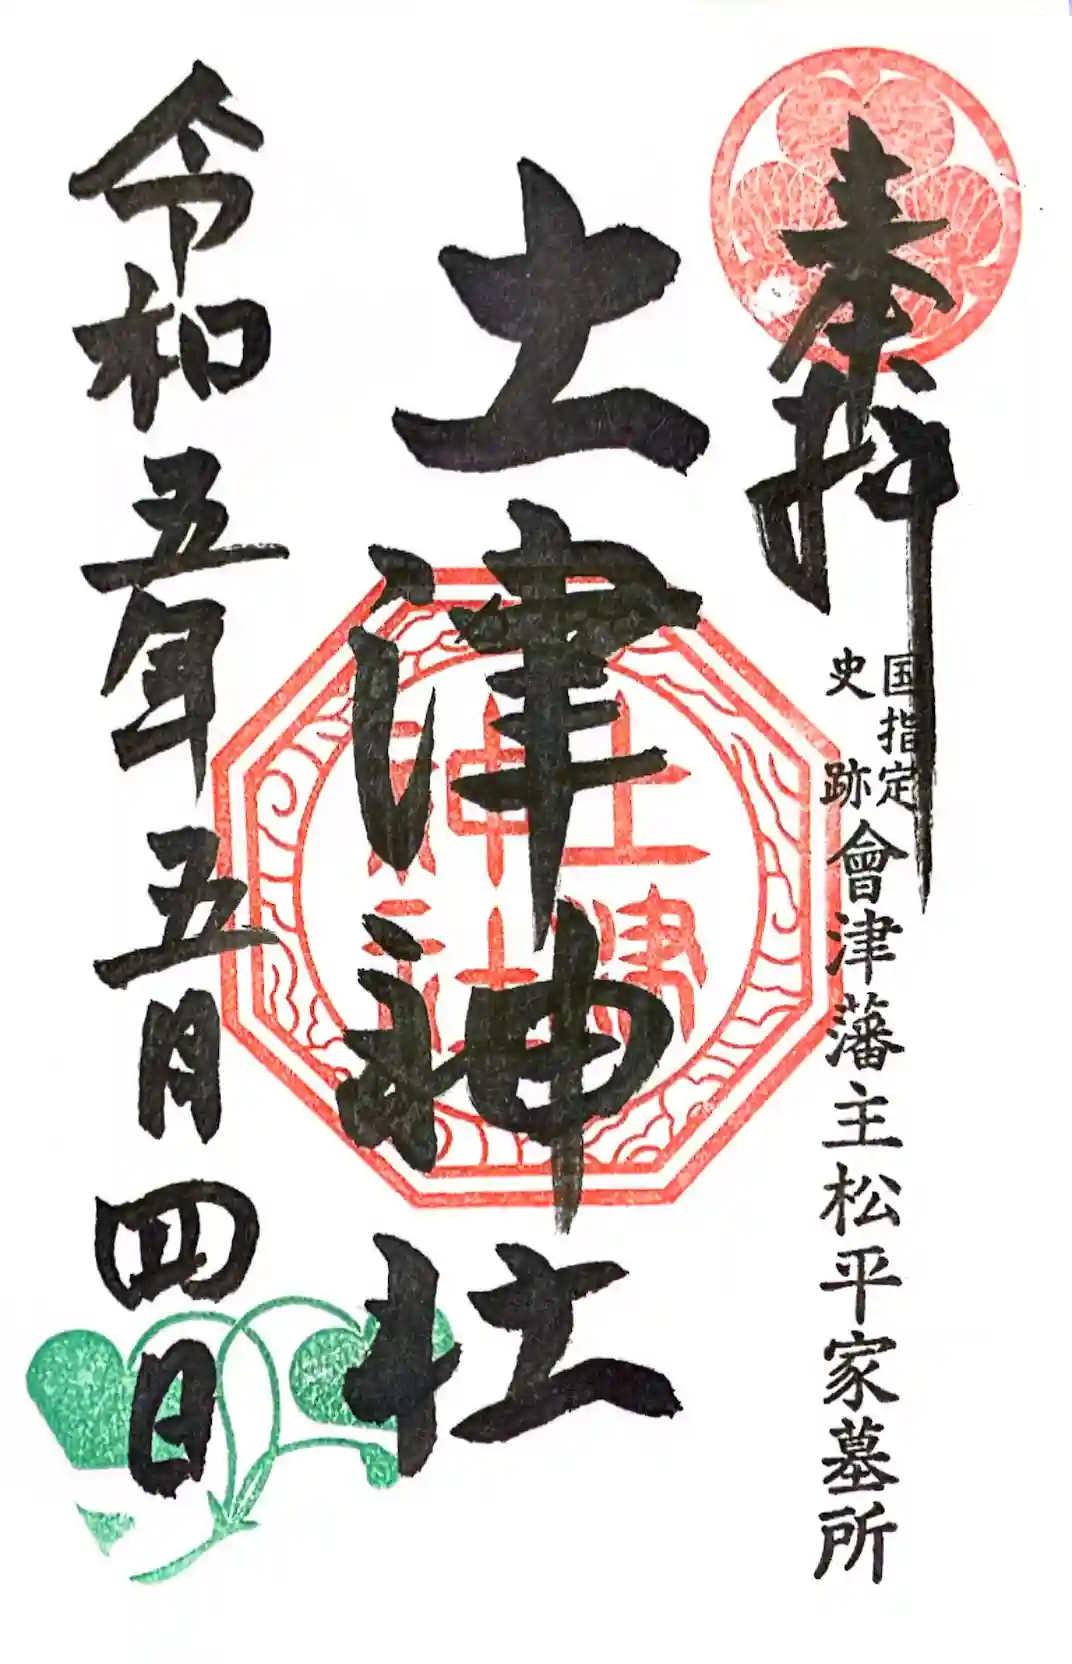 奉拝
国指定
史跡
會津藩主松平家墓所
土津神社
土津
神社
令和五年五月四日